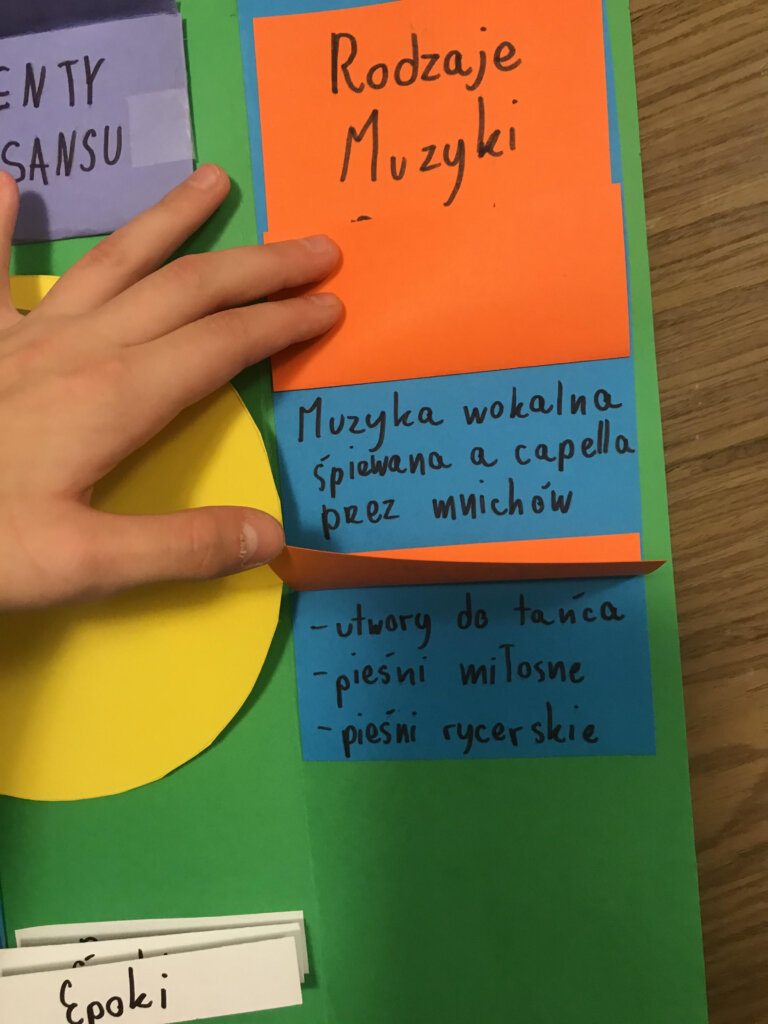 ENTY
SANSU
Rodzaje
Muzyki
Muzyka wokalna
śpiewana a capella
prez mnichów
-utwory do tańca
-pieśni miłosne
-pieśni rycerskie
Epoki